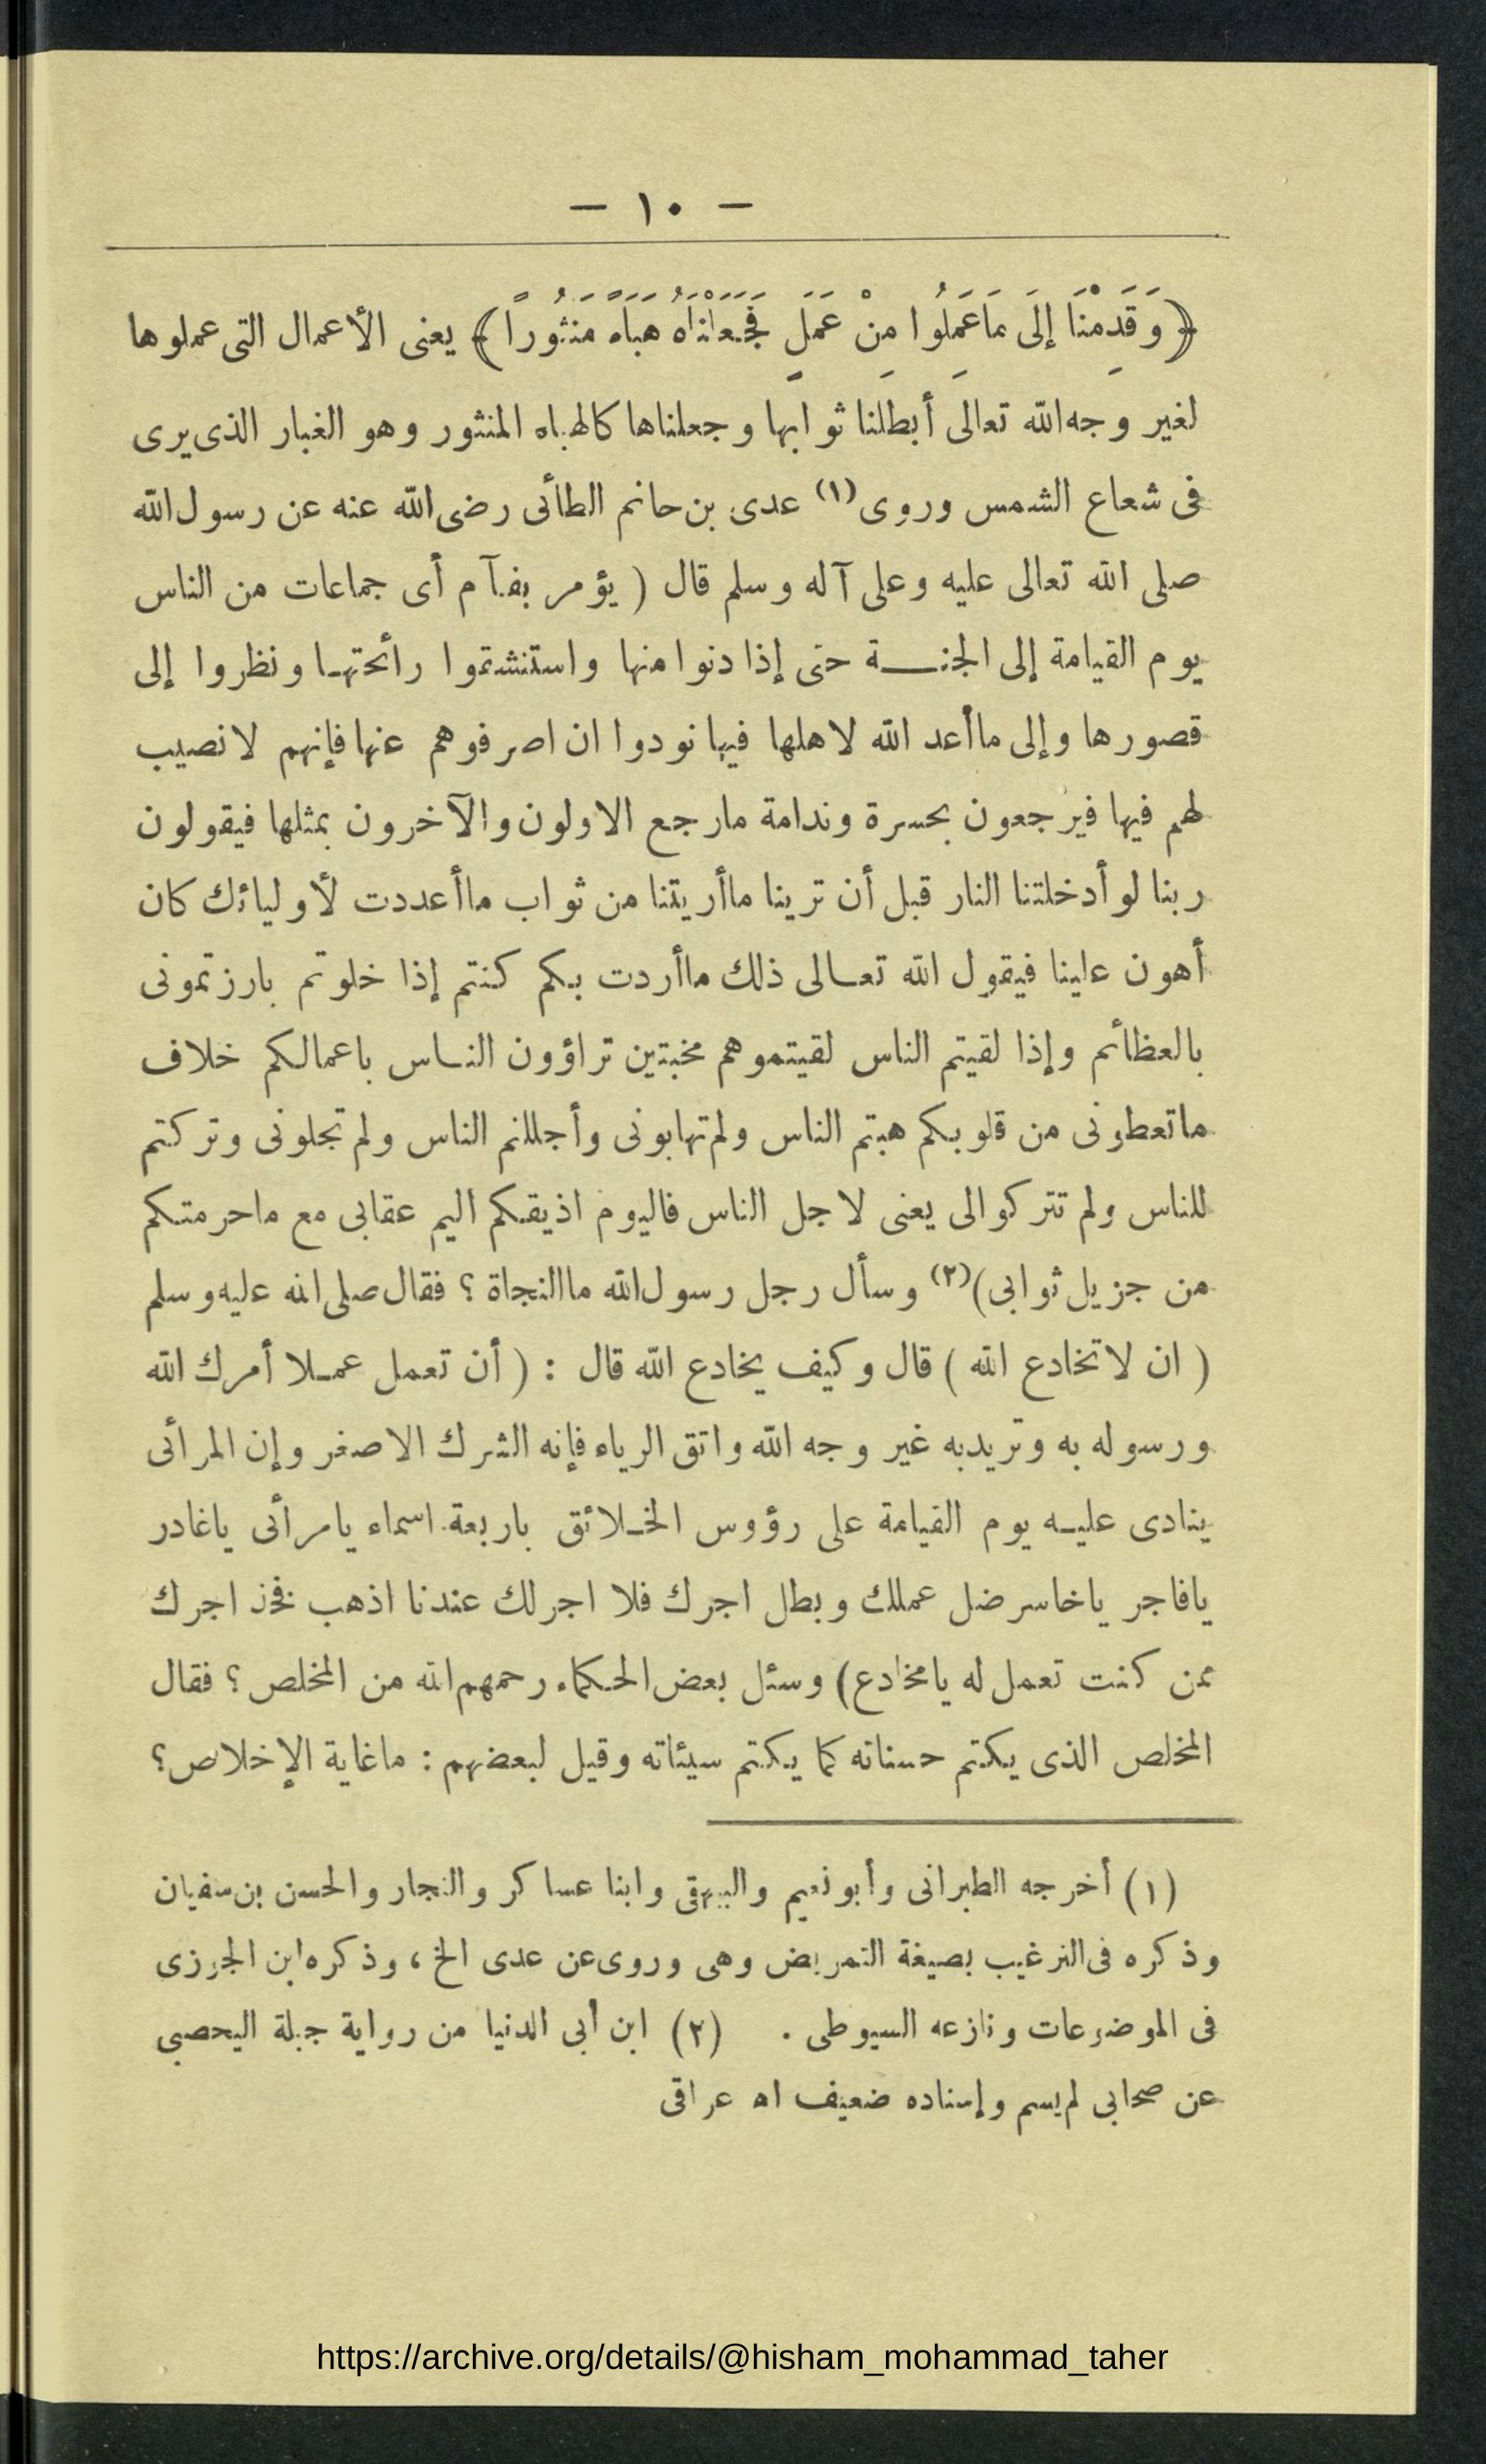 — ١٠ —
﴿ وَقَدِمْنَا إِلَى مَا عَمِلُوا مِنْ عَمَلٍ فَجَعَلْنَاهُ هَبَاءً مَنْثُوراً ﴾ يعنى الأعمال التى عملوها
لغير وجه الله تعالى أبطلنا ثوابها وجعلناها كالهباء المنثور وهو الغبار الذى يرى
فى شعاع الشمس وروى (١) عدى بن حاتم الطائى رضى الله عنه عن رسول الله
صلى الله تعالى عليه وعلى آله وسلم قال ( يؤمر بفآم أى جماعات من الناس
يوم القيامة إلى الجنــة حتى إذا دنوا منها واستنشقوا رائحتها ونظروا إلى
قصورها وإلى ماأعد الله لاهلها فيها نودوا ان اصرفوهم عنها فإنهم لا نصيب
لهم فيها فيرجعون بحسرة وندامة مارجع الاولون والآخرون بمثلها فيقولون
ربنا لو أدخلتنا النار قبل أن ترينا ماأريتنا من ثواب ماأعددت لأوليائك كان
أهون علينا فيقول الله تعالى ذلك ماأردت بكم كنتم إذا خلوتم بارزتمونى
بالعظائم وإذا لقيتم الناس لقيتموهم مخبتين تراؤون النـاس باعمالكم خلاف
ماتعطونى من قلوبكم هبتم الناس ولم تهابونى وأجللتم الناس ولم تجلونى وتركتم
للناس ولم تتركوا لى يعنى لاجل الناس فاليوم اذيقكم اليم عقابى مع ماحرمتكم
من جزيل ثوابى) (٢) وسأل رجل رسول الله ماالنجاة ؟ فقال صلى الله عليه وسلم
( ان لا تخادع الله ) قال وكيف يخادع الله قال : ( أن تعمل عمـلا أمرك الله
ورسوله به وتريد به غير وجه الله واتق الرياء فإنه الشرك الاصغر وإن المرائى
ينادى عليـه يوم القيامة على رؤوس الخـلائق باربعة اسماء يامرائى ياغادر
يافاجر ياخاسر ضل عملك وبطل اجرك فلا اجر لك عندنا اذهب فخذ اجرك
ممن كنت تعمل له يامخادع) وسئل بعض الحكماء رحمهم الله من المخلص ؟ فقال
المخلص الذى يكتم حسناته كما يكتم سيئاته وقيل لبعضهم : ماغاية الإخلاص ؟
(١) أخرجه الطبرانى وأبو نعيم والبيهقى وابنا عساكر والنجار والحسن بن سفيان
وذكره فى الترغيب بصيغة التمريض وهى وروى عن عدى الخ ، وذكره ابن الجوزى
فى الموضوعات ونازعه السيوطى . (٢) ابن أبى الدنيا من رواية جبلة اليحصبى
عن صحابى لم يسم وإسناده ضعيف اه عراقى
https://archive.org/details/@hisham_mohammad_taher